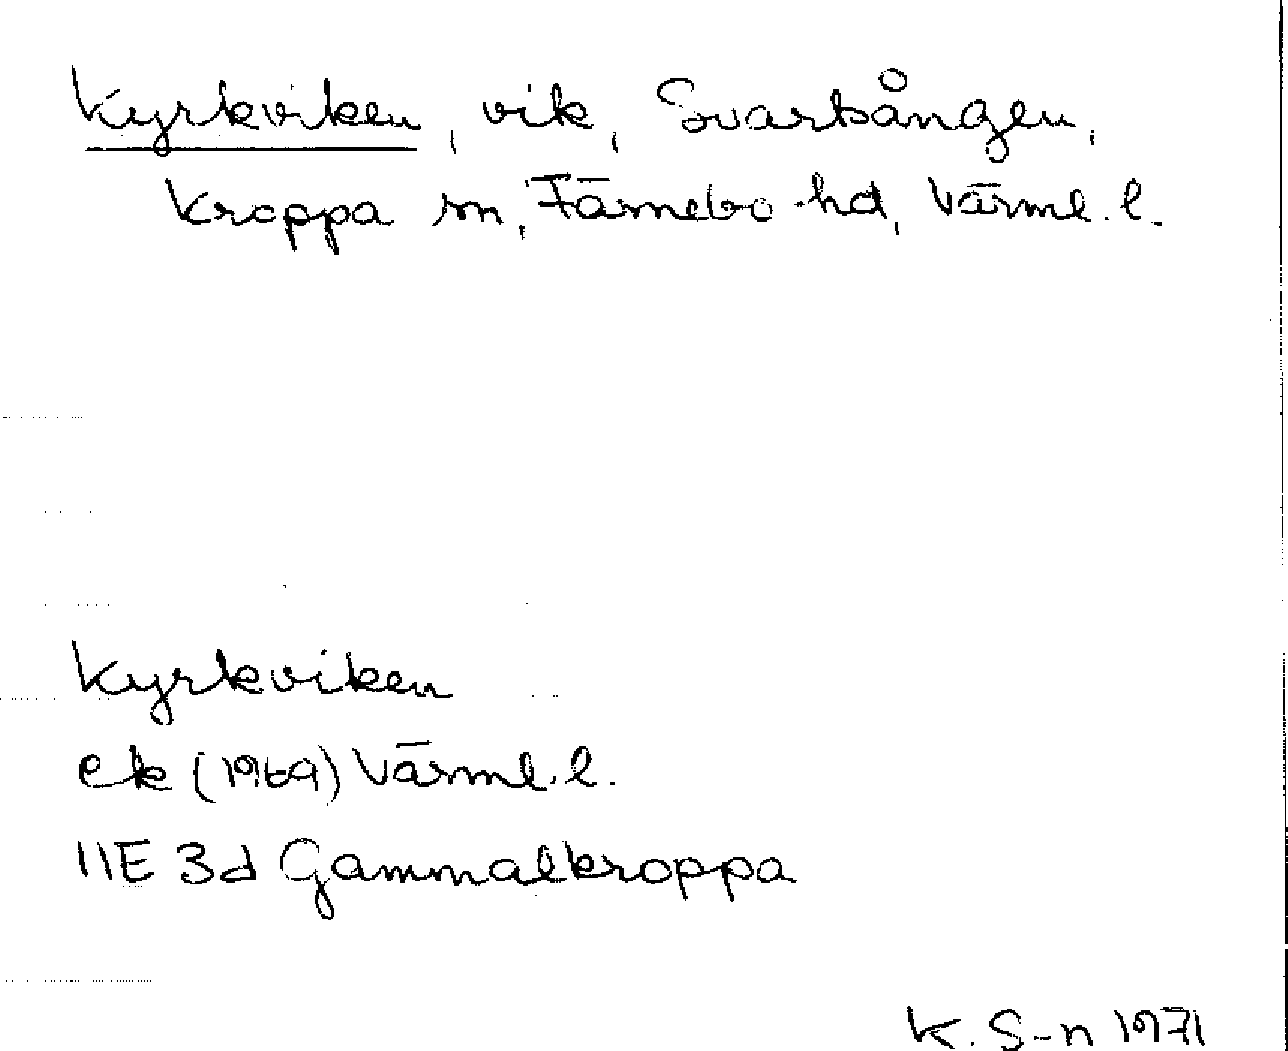 Kyrkviken, vik, Svartsången,
Kroppa sn, Färnebo hd, Värml. l.
Kyrkviken
ek (1969) Värml. l.
11E 3d Gammalkroppa
K. S-n 1971